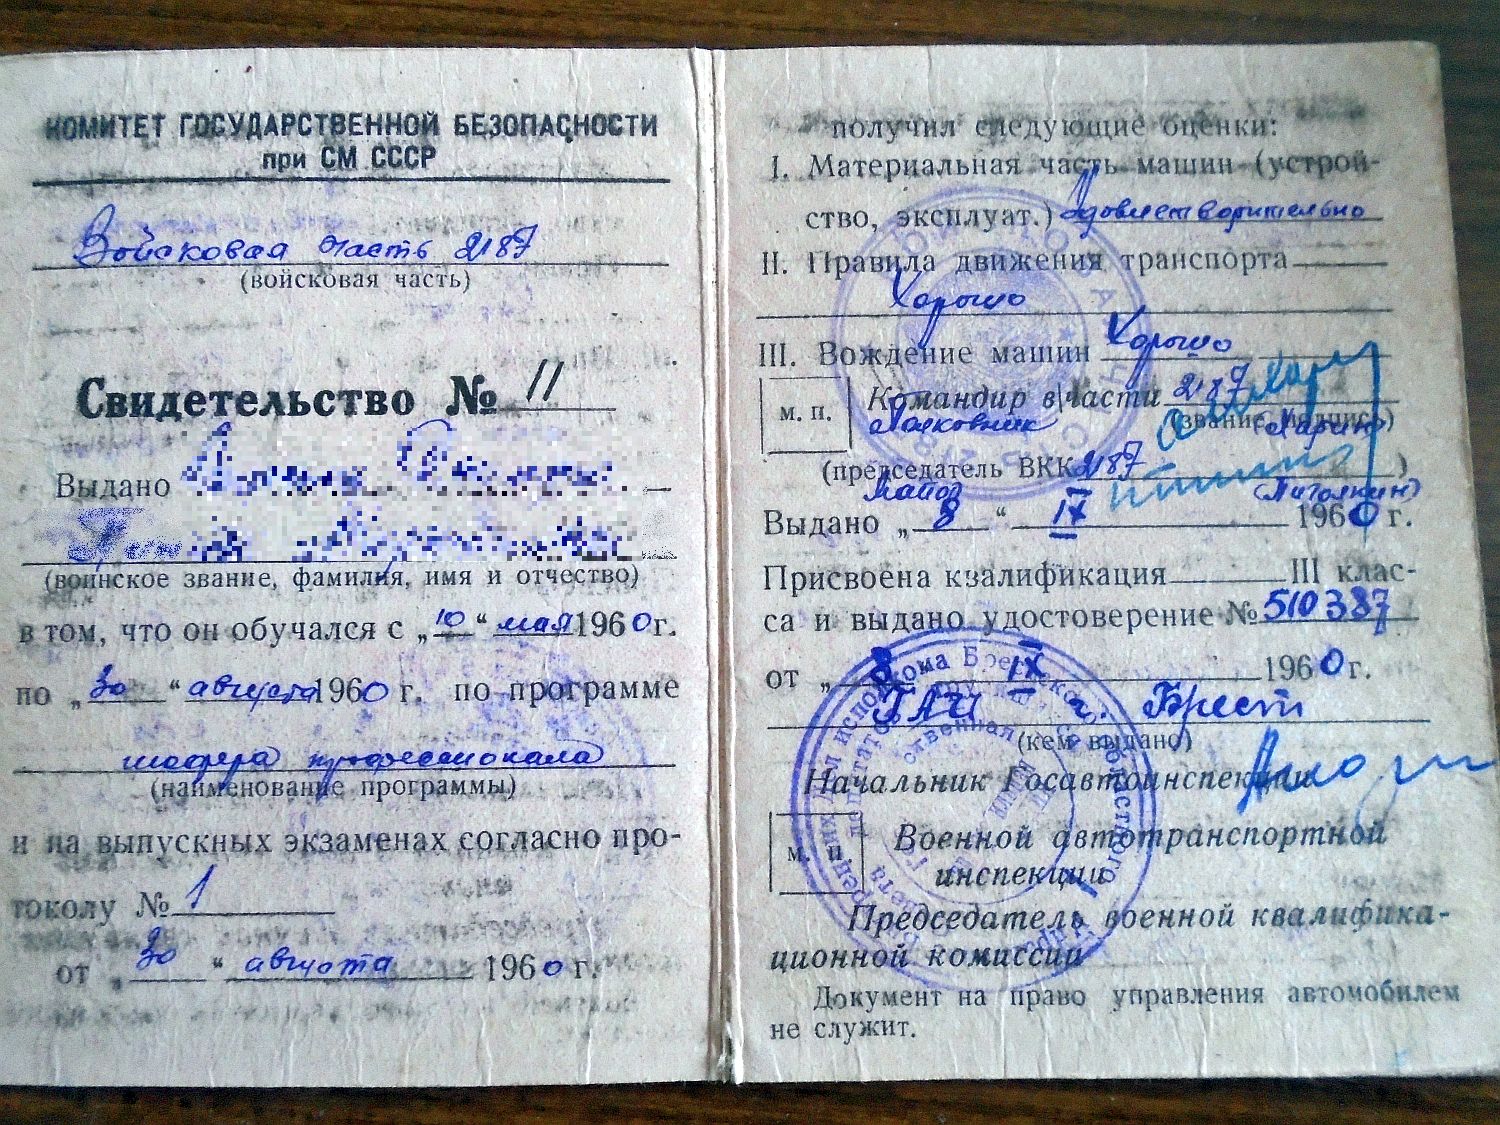 КОМИТЕТ ГОСУДАРСТВЕННОЙ БЕЗОПАСНОСТИ
при СМ СССР
Войсковая часть 2187
(войсковая часть)
Свидетельство № 11
Выдано
(воинское звание, фамилия, имя и отчество)
в том, что он обучался с „10“ мая 1960 г.
по „30“ августа 1960 г. по программе
шофера профессионала
(наименование программы)
и на выпускных экзаменах согласно про-
токолу № 1
от „30“ августа 1960 г.
получил следующие оценки:
I. Материальная часть машин (устрой-
ство, эксплуат.) удовлетворительно
II. Правила движения транспорта
Хорошо
III. Вождение машин Хорошо
м. п.
Командир в/части 2187
Полковник (звание, подпись)
(председатель ВКК 2187)
Майор
Выдано „8“ IX 1960 г.
Присвоена квалификация III клас-
са и выдано удостоверение № 510387
от „8“ IX 1960 г.
ГАИ г. Брест
(кем выдано)
Начальник Госавтоинспекции
м. п.
Военной автотранспортной
инспекции
Председатель военной квалифика-
ционной комиссии
Документ на право управления автомобилем
не служит.